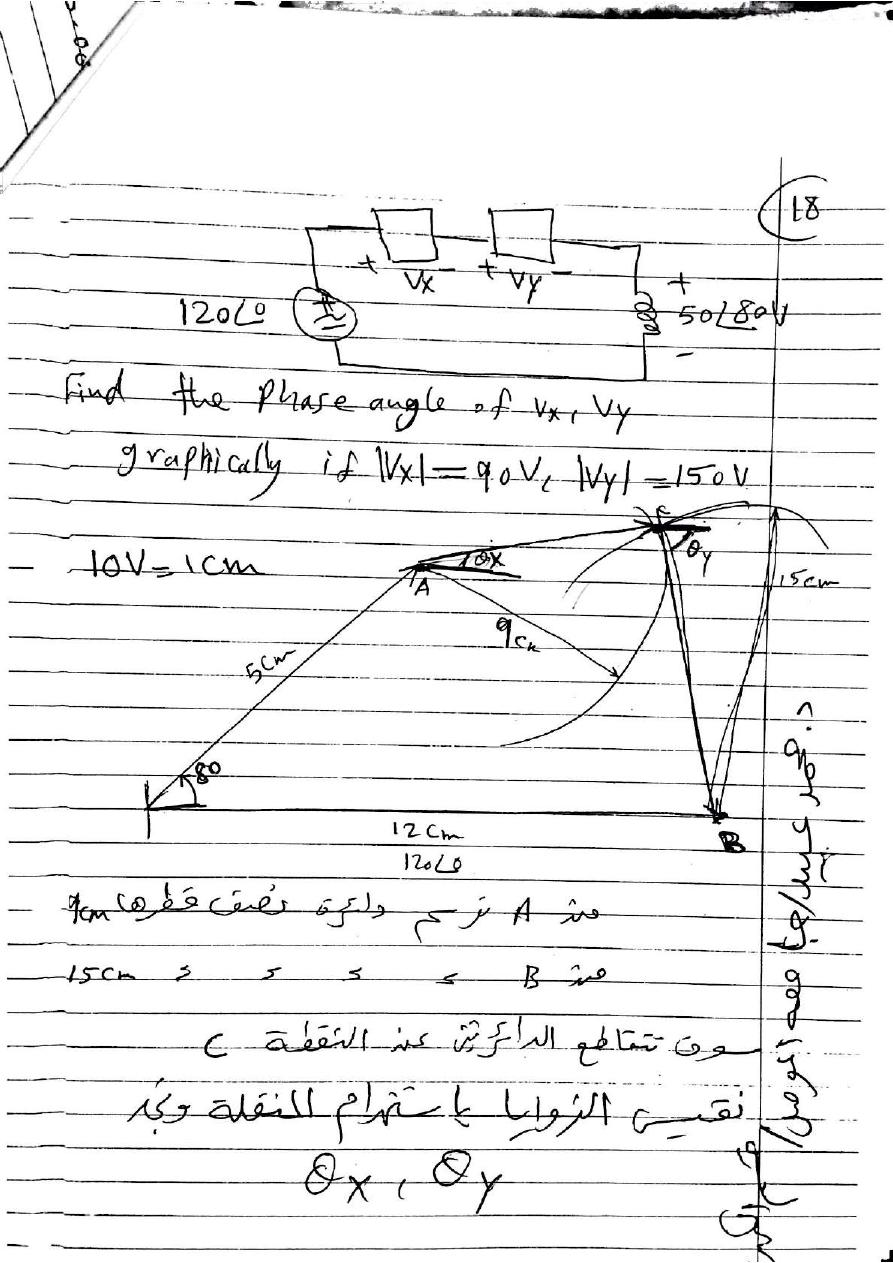 18
+ Vx - + Vy -
120∠0
+
50∠80 V
-
Find the phase angle of Vx, Vy
graphically if |Vx| = 90V, |Vy| = 150V
10V = 1cm
C
θx
θy
A
15cm
9cm
5cm
80
12 cm
120∠0
B
من A نرسم دائرة نصف قطرها 9cm
من B = = = = 15cm
سوف تتقاطع الدائرتين عند النقطة C
نقيس الزوايا باستخدام المنقلة ونجد
θx , θy